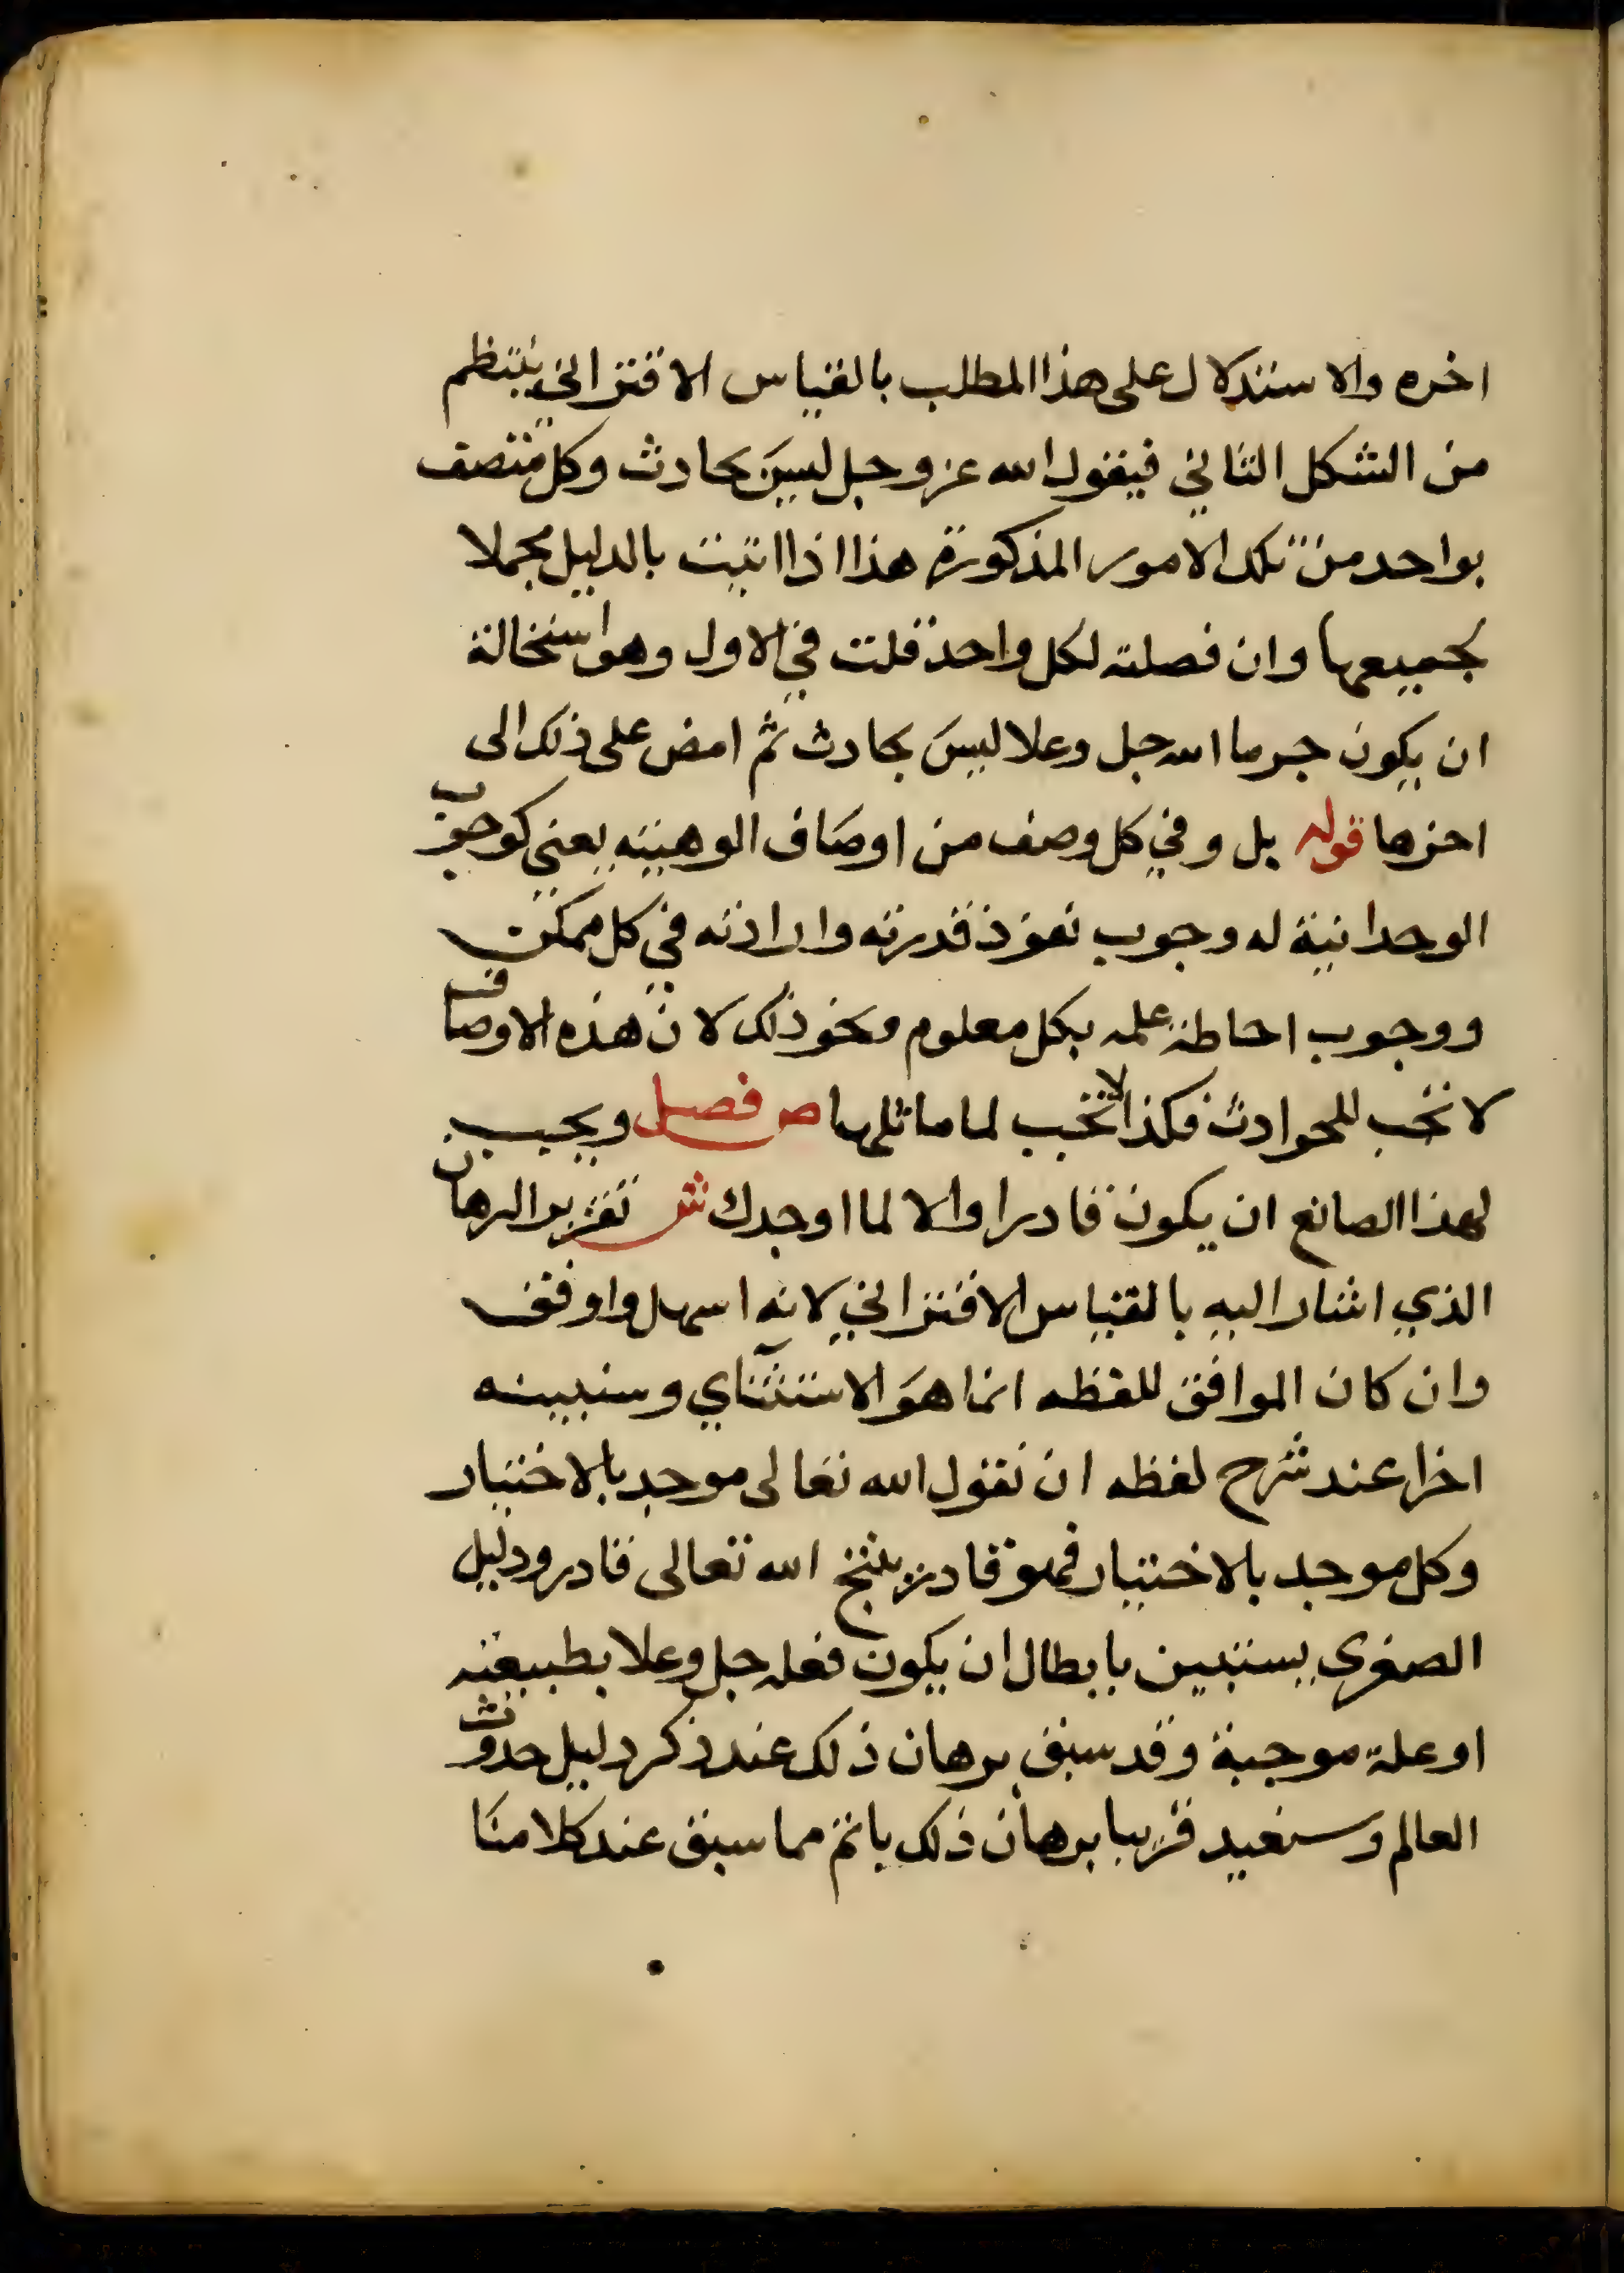 اخره والاستدلال على هذا المطلب بالقياس الاقتراني ينتظم
من الشكل الثاني فيقول الله عز وجل ليس بحادث وكل متصف
بواحد من تلك الامور المذكورة هذا اذا اتيت بالدليل مجملا
بجميعها وان فصلته لكل واحد قلت في الاول وهو استحالة
ان يكون جرما الله جل وعلا ليس بحادث ثم امض على ذلك الى
اخرها قوله بل وفي كل وصف من اوصاف الوهيته يعني كوجوب
الوحدانية له وجوب نفوذ قدرته وارادته في كل ممكن
ووجوب احاطة علمه بكل معلوم ونحو ذلك لان هذه الاوصاف
لا تجب للحوادث فكذا لا تجب لما ماثلها ص فصل ويجب
لهذا الصانع ان يكون قادرا والا لما اوجدك ش تقرير البرهان
الذي اشار اليه بالقياس الاقتراني لانه اسهل واوفق
وان كان الموافق للفظه انما هو الاستثناي وسنبينه
اخرا عند شرح لفظه ان نقول الله تعالى موجد بالاختيار
وكل موجد بالاختيار فهو قادر ينتج الله تعالى قادر ودليل
الصغرى يستبين بابطال ان يكون فعله جل وعلا بطبيعته
او علة موجبة وقد سبق برهان ذلك عند ذكر دليل حدوث
العالم وسنعيد قريبا برهان ذلك باتم مما سبق عند كلامنا